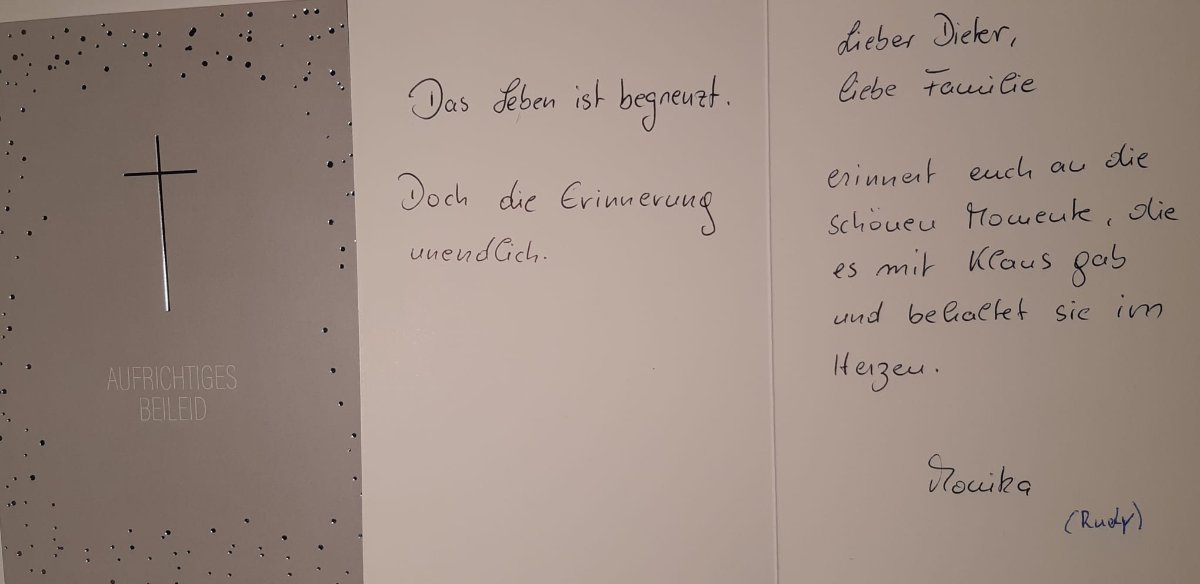 AUFRICHTIGES
BEILEID
Das Leben ist begrenzt.
Doch die Erinnerung
unendlich.
Lieber Dieter,
liebe Familie
erinnert euch an die
schönen Momente, die
es mit Klaus gab
und behaltet sie im
Herzen.
Monika
(Rudy)